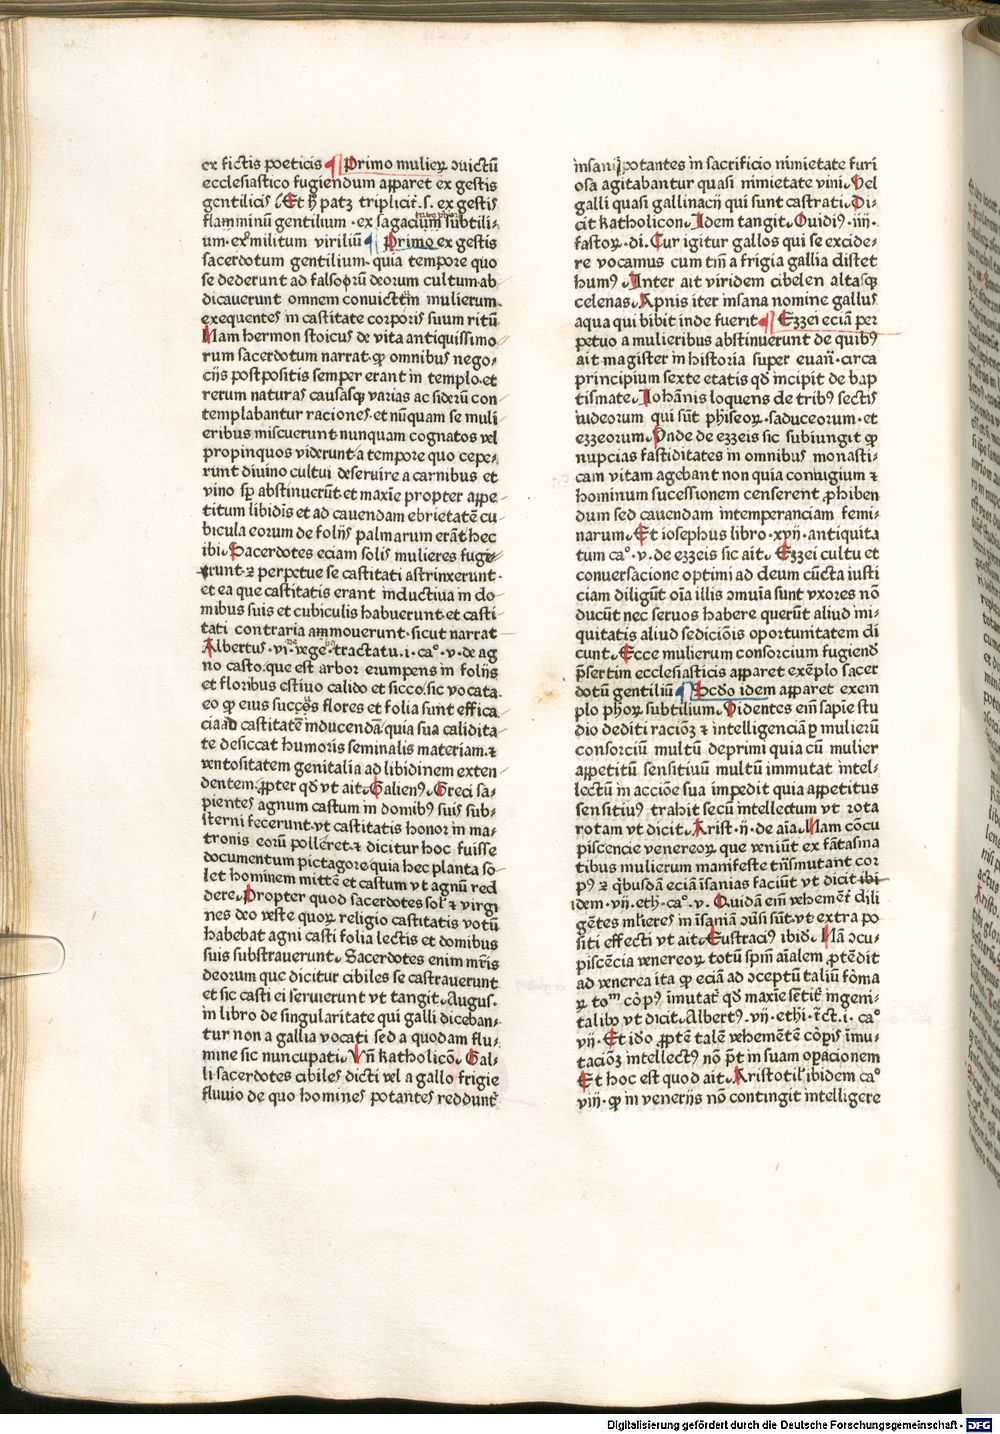 ex fictis poeticis ¶ Primo mulieꝝ ↄuictū
ecclesiastico fugiendum apparet ex gestis
gentiliciſ Et hͦ patꝫ triplicit̃.ſ. ex gestis
flamminum gentilium · ex sagacium subtili⸗
um · ex militum viriliū ¶ Primo ex gestis
sacerdotum gentilium · quia tempore quo
se dederunt ad falsoꝝ deorum cultum ab
dicauerunt omnem convictum mulierum.
exequentes in castitate corporis suum ritū
Nam hermon stoicus de vita antiquissimo
rum sacerdotum narrat · ꝙ omnibus nego⸗
cijs postpositis semper erant in templo · et
rerum naturas causasqꝫ varias ac siderū con
templabantur raciones · et nūquam se muli
eribus miscuerunt nunquam cognatos vel
propinquos viderunt a tempore quo cepe⸗
runt diuino cultui deseruire a carnibus et
vino sp̄ abstinuerūt · et maxīe propter appe⸗
titum libidīs et ad cauendam ebrietatē cu⸗
bicula eorum de folijs palmarum erāt hec
ibi. Sacerdotes eciam solis mulieres fuge
runt · ⁊ perpetue se castitati astrinxerunt ·
et ea que castitatis erant inductiua in do⸗
mibus suis et cubiculis habuerunt · et casti
tati contraria ammouerunt · sicut narrat
Albertus · vi · vege · tractatu · i · caͦ · v · de ag
no casto · que est arbor erumpens in folijs
et floribus estiuo calido et sicco · sic vocata ·
eo ꝙ eius succos flores et folia sunt effica
cia ad castitatem inducendā quia sua calidita
te desiccat humoris seminalis materiam · ⁊
ventositatem genitalia ad libidinem exten
dentem · ꝓpter qd̄ vt ait. Galienꝯ. Greci sa⸗
pientes agnum castum in domibꝯ suis sub⸗
sterni fecerunt · vt castitatis honor in ma⸗
tronis eorū polleret · ⁊ dicitur hoc fuisse
documentum pictagore quia hec planta so
let hominem mittē et castum vt agnū red
dere. Propter quod sacerdotes sol̄ ⁊ virgi
nes deo veste quoꝝ religio castitatis votū
habebat agni casti folia lectis et domibus
suis substrauerunt. Sacerdotes enim mr̄is
deorum que dicitur cibiles se castrauerunt
et sic casti ei seruierunt vt tangit. Augus.
in libro de singularitate qui galli diceban⸗
tur non a gallia vocati sed a quodam flu⸗
mine sic nuncupati. Vn̄ katholicō. Gal⸗
li sacerdotes cibiles dicti vel a gallo frigie
fluuio de quo homines potantes reddunt̃
insani potantes in sacrificio nimietate furi
osa agitabantur quasi nimietate vini. Vel
galli quasi gallinacij qui sunt castrati. Di⸗
cit katholicon. Idem tangit. Ouidiꝯ · iiij ·
fastoꝝ · di. Cur igitur gallos qui se excide⸗
re vocamus cum tm̄ a frigia gallia distet
humꝯ. Inter ait viridem cibelen altasqꝫ
celenas. Apnis iter insana nomine gallus
aqua qui bibit inde fuerit ¶ Ezzei eciā per
petuo a mulieribus abstinuerunt de quibꝯ
ait magister in historia super euan̄ · circa
principium sexte etatis qd̄ incipit de bap
tismate. Iohānis loquens de tribꝯ sectis
iudeorum qui sūt phiseoꝝ · saduceorum · et
ezzeorum. Vnde de ezzeis sic subiungit ꝙ
nupcias fastiditates in omnibus monasti⸗
cam vitam agebant non quia coniugium ⁊
hominum sucessionem censerent ꝓhiben
dum sed cauendam intemperanciam femi⸗
narum. Et iosephus libro · xvij · antiquita
tum caͦ · v · de ezzeis sic ait. Ezzei cultu et
conuersacione optimi ad deum cūcta iusti
ciam diligūt oīa illis ↄmuīa sunt vxores nō
ducūt nec seruos habere querūt aliud ini⸗
quitatis aliud sediciōis oportunitatem di
cunt. Ecce mulierum consorcium fugiend̄
p̄sertim ecclesiasticis apparet exēplo sacer
dotū gentiliū ¶ Scd̄o idem apparet exem
plo phoꝝ subtilium. Videntes eim̄ sapīe stu
dio dediti racioꝫ ⁊ intelligenciaꝫ ꝑ mulierū
consorciū multū deprimi quia cū mulier
appetitū sensitiuū multū immutat intel⸗
lectū in accioe sua impedit quia appetitus
sensitiuꝯ trahit secū intellectum vt rota
rotam vt dicit. Arist · ij · de aīa. Nam cōcu
piscencie venereoꝝ que veniūt ex fātasina
tibus mulierum manifeste tn̄smutant cor
pꝯ ⁊ qͥbusdā eciā īsanias faciūt vt dicit ibi⸗
idem · vij · eth · caͦ · v. Quidā eim̄ vehemēt̃ dili
gētes mlieres in īsaniā ↄūsi sūt · vt extra po
siti effecti vt ait. Eustraciꝯ ibid̄. Nā ↄcu⸗
piscēcia venereoꝝ totū spm̄ aīalem ꝓtēdit
ad venerea ita ꝙ eciā ad ↄceptū taliū foma
ꝝ toᵐ cōpꝯ īmutat̃ qd̄ maxie sētit̃ ingeni⸗
talibꝯ vt dicit. Albertꝯ · vij · ethi · tc̄t · i · caͦ
vij · Et ido ꝓptē talē vehemētē cōpis īmu⸗
tacioꝫ intellectꝯ nō p̄t in suam oꝑacionem
Et hoc est quod ait. Aristotil ibidem caͦ
viij · ꝙ in venerijs nō contingit intelligere
Digitalisierung gefördert durch die Deutsche Forschungsgemeinschaft - DFG